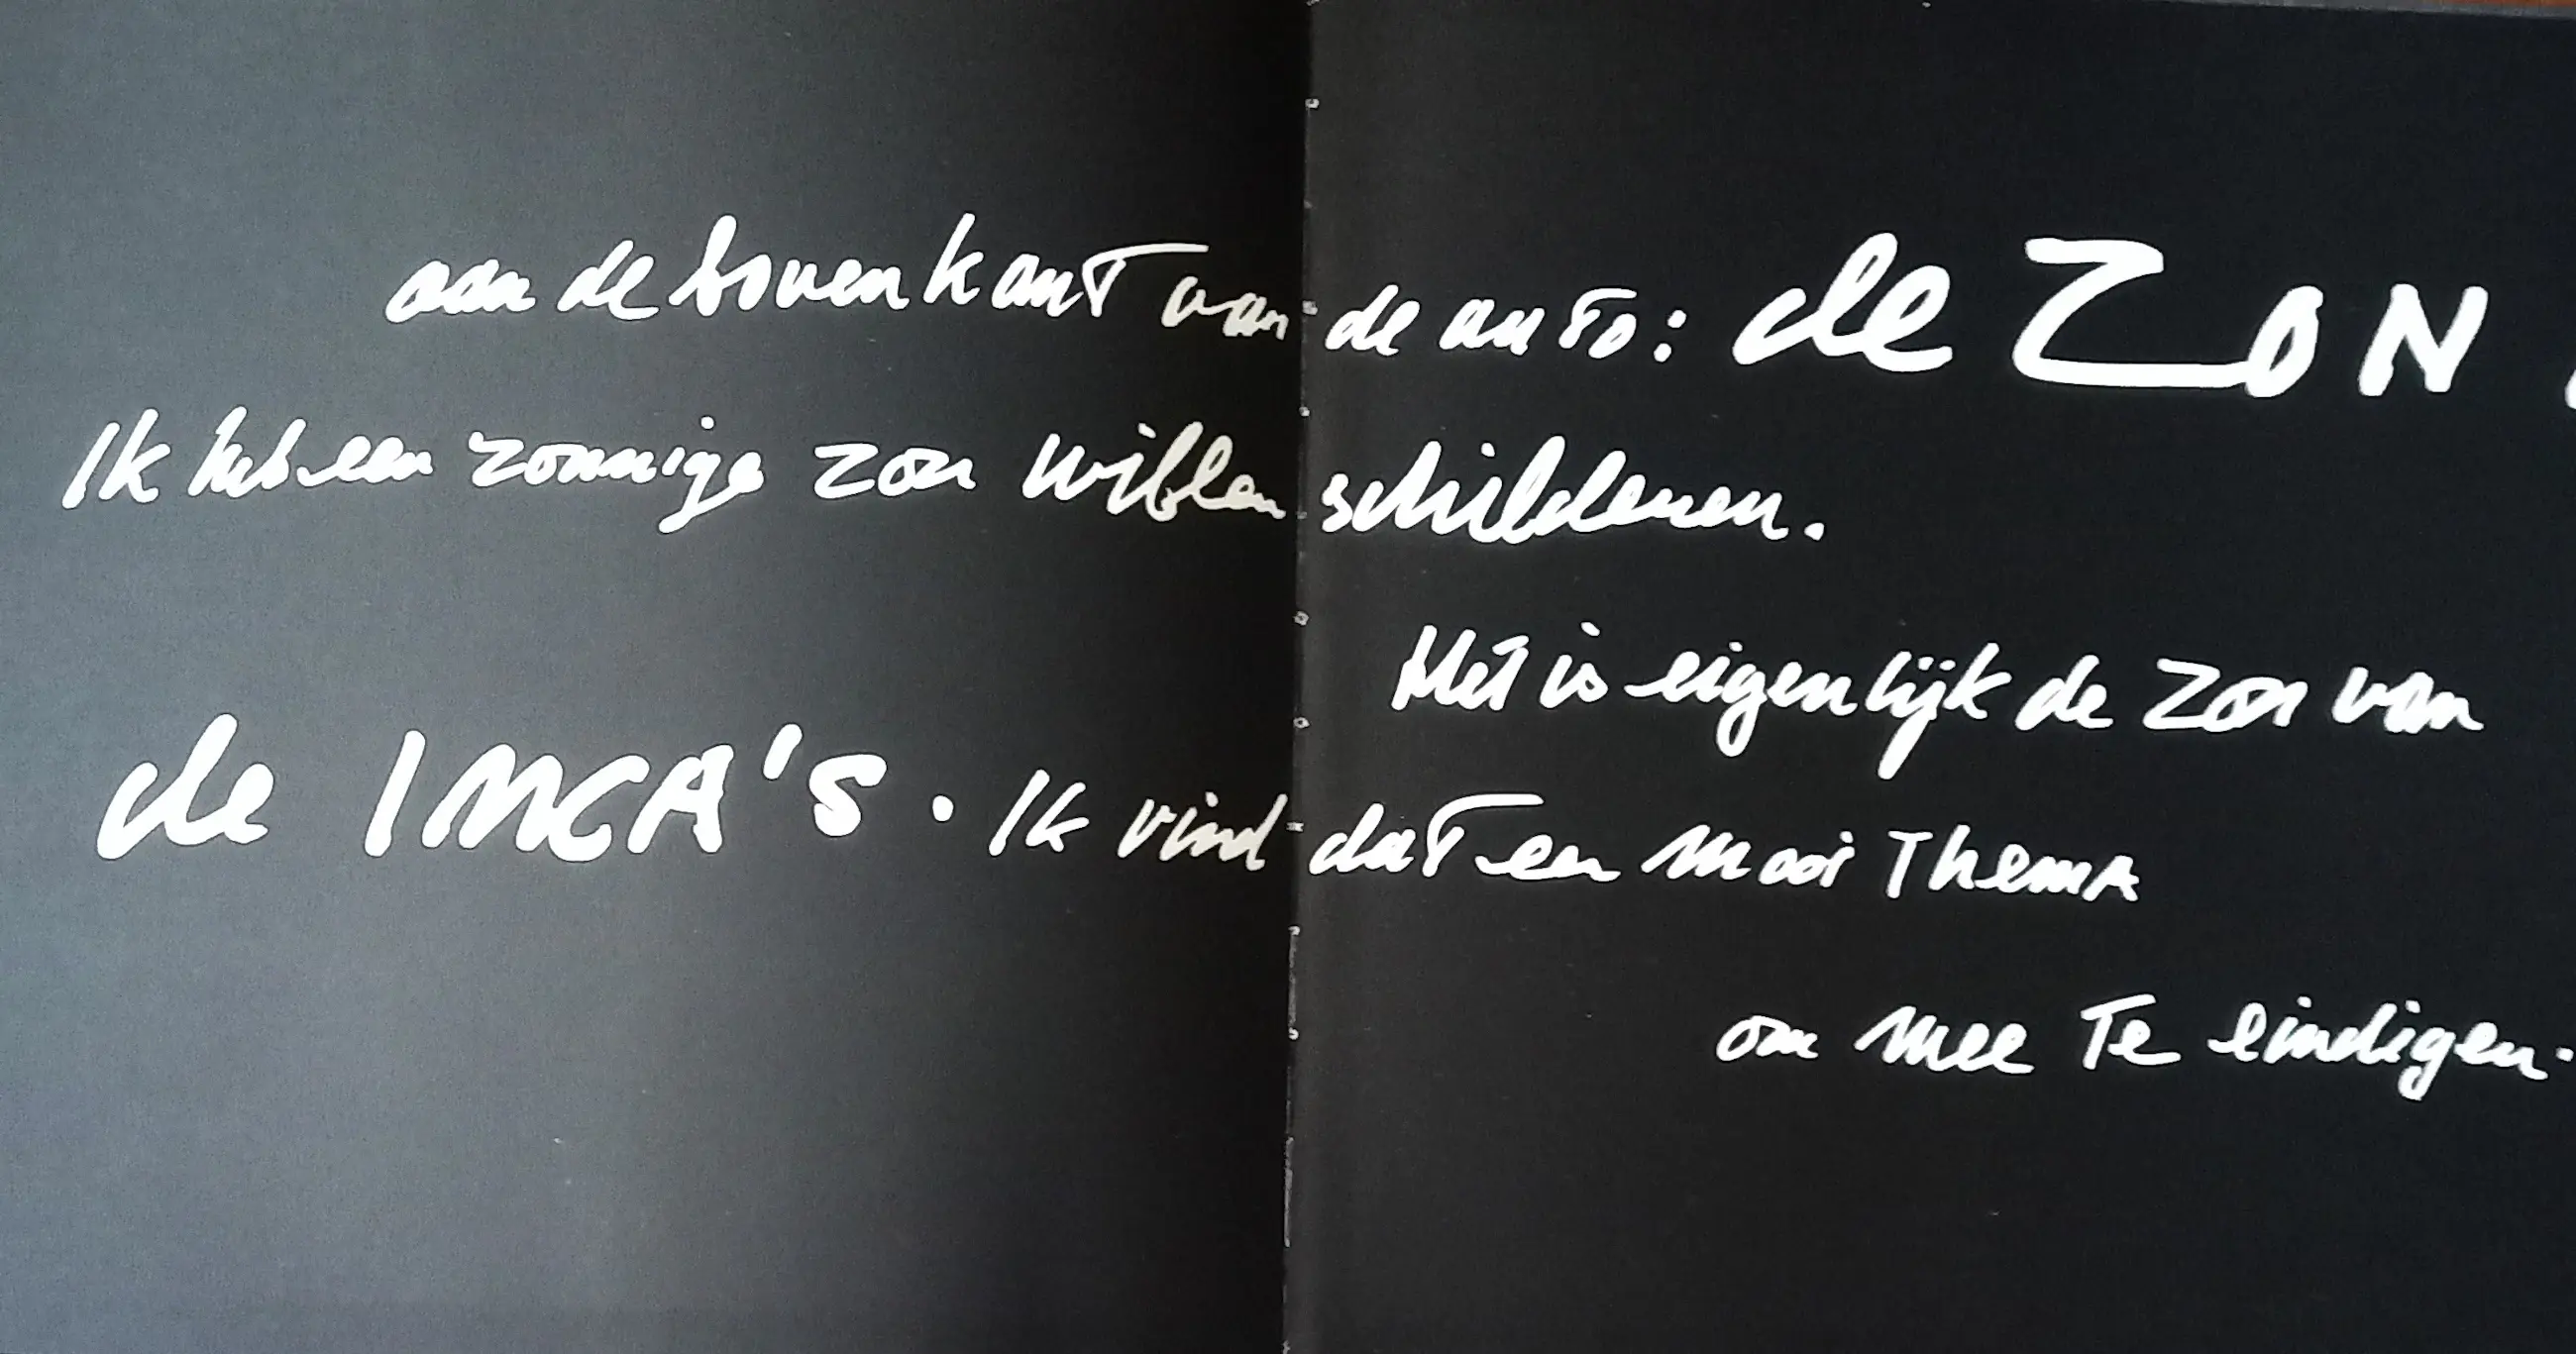 aan de bovenkant van de auto: de ZON.
Ik heb een zonnige zon willen schilderen.
Het is eigenlijk de zon van
de INCA'S. Ik vind dat een mooi Thema
om mee Te eindigen.